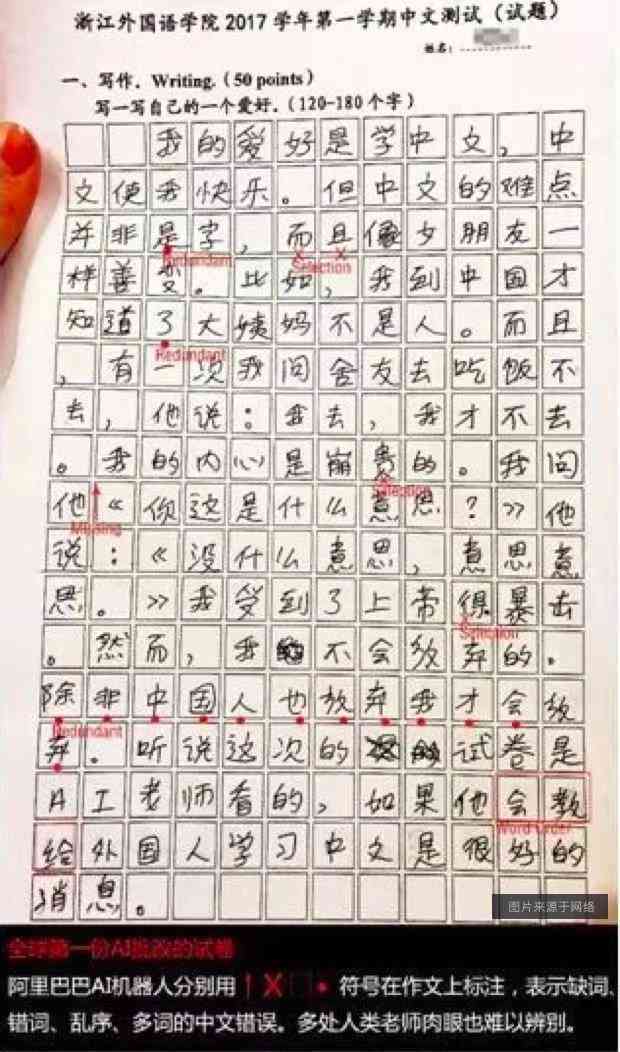 浙江外国语学院2017学年第一学期中文测试（试题）
姓名：
一、写作．Writing.（50 points）
写一写自己的一个爱好．（120-180个字）
我的爱好是学中文，中
文使我快乐。但中文的难点
并非是字，而且像女朋友一
Redundant Selection
样善变。比如，我到中国才
知道了大姨妈不是人。而且
Redundant
，有一次我问舍友去吃饭不
去，他说：我去，我才不去
。我的内心是崩贵的。我问
Selection
他《你这是什么意思？》他
Missing
说：《没什么意思，意思意
思。》我受到了上帝得暴击
Selection
。然而，我不会放弃的。
除非中国人也放弃我才会放
Redundant
弃。听说这次的试卷是
AI老师看的，如果他会教
Word Order
给外国人学习中文是很好的
消息。
图片来源于网络
全球第一份AI批改的试卷
阿里巴巴AI机器人分别用↑X□•符号在作文上标注，表示缺词、
错词、乱序、多词的中文错误。多处人类老师肉眼也难以辨别。